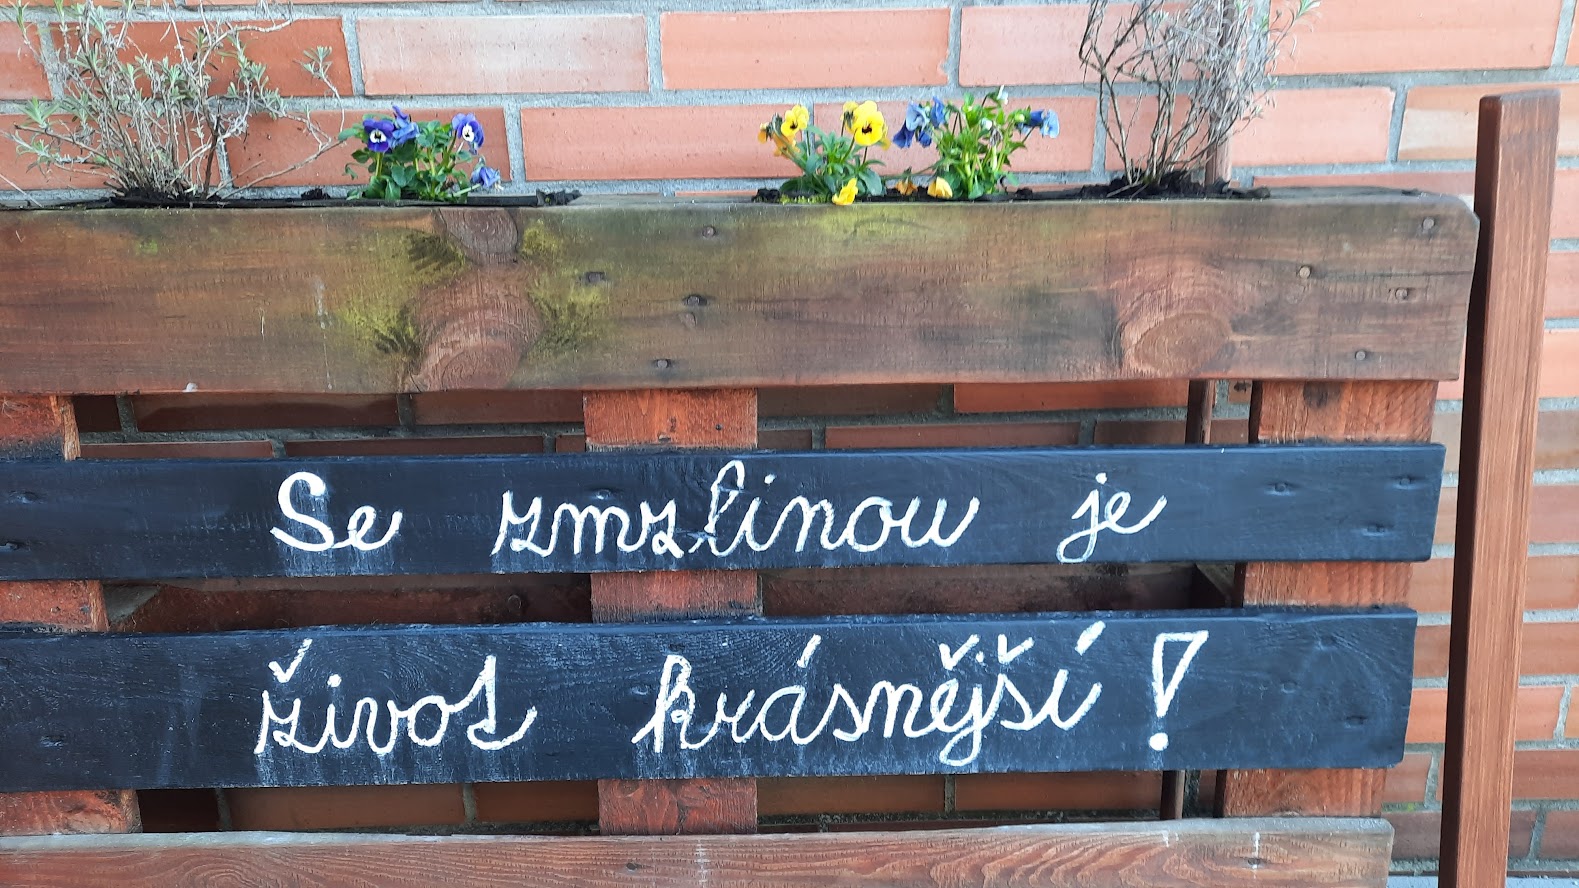 Se zmzlinou je
život krásnější!